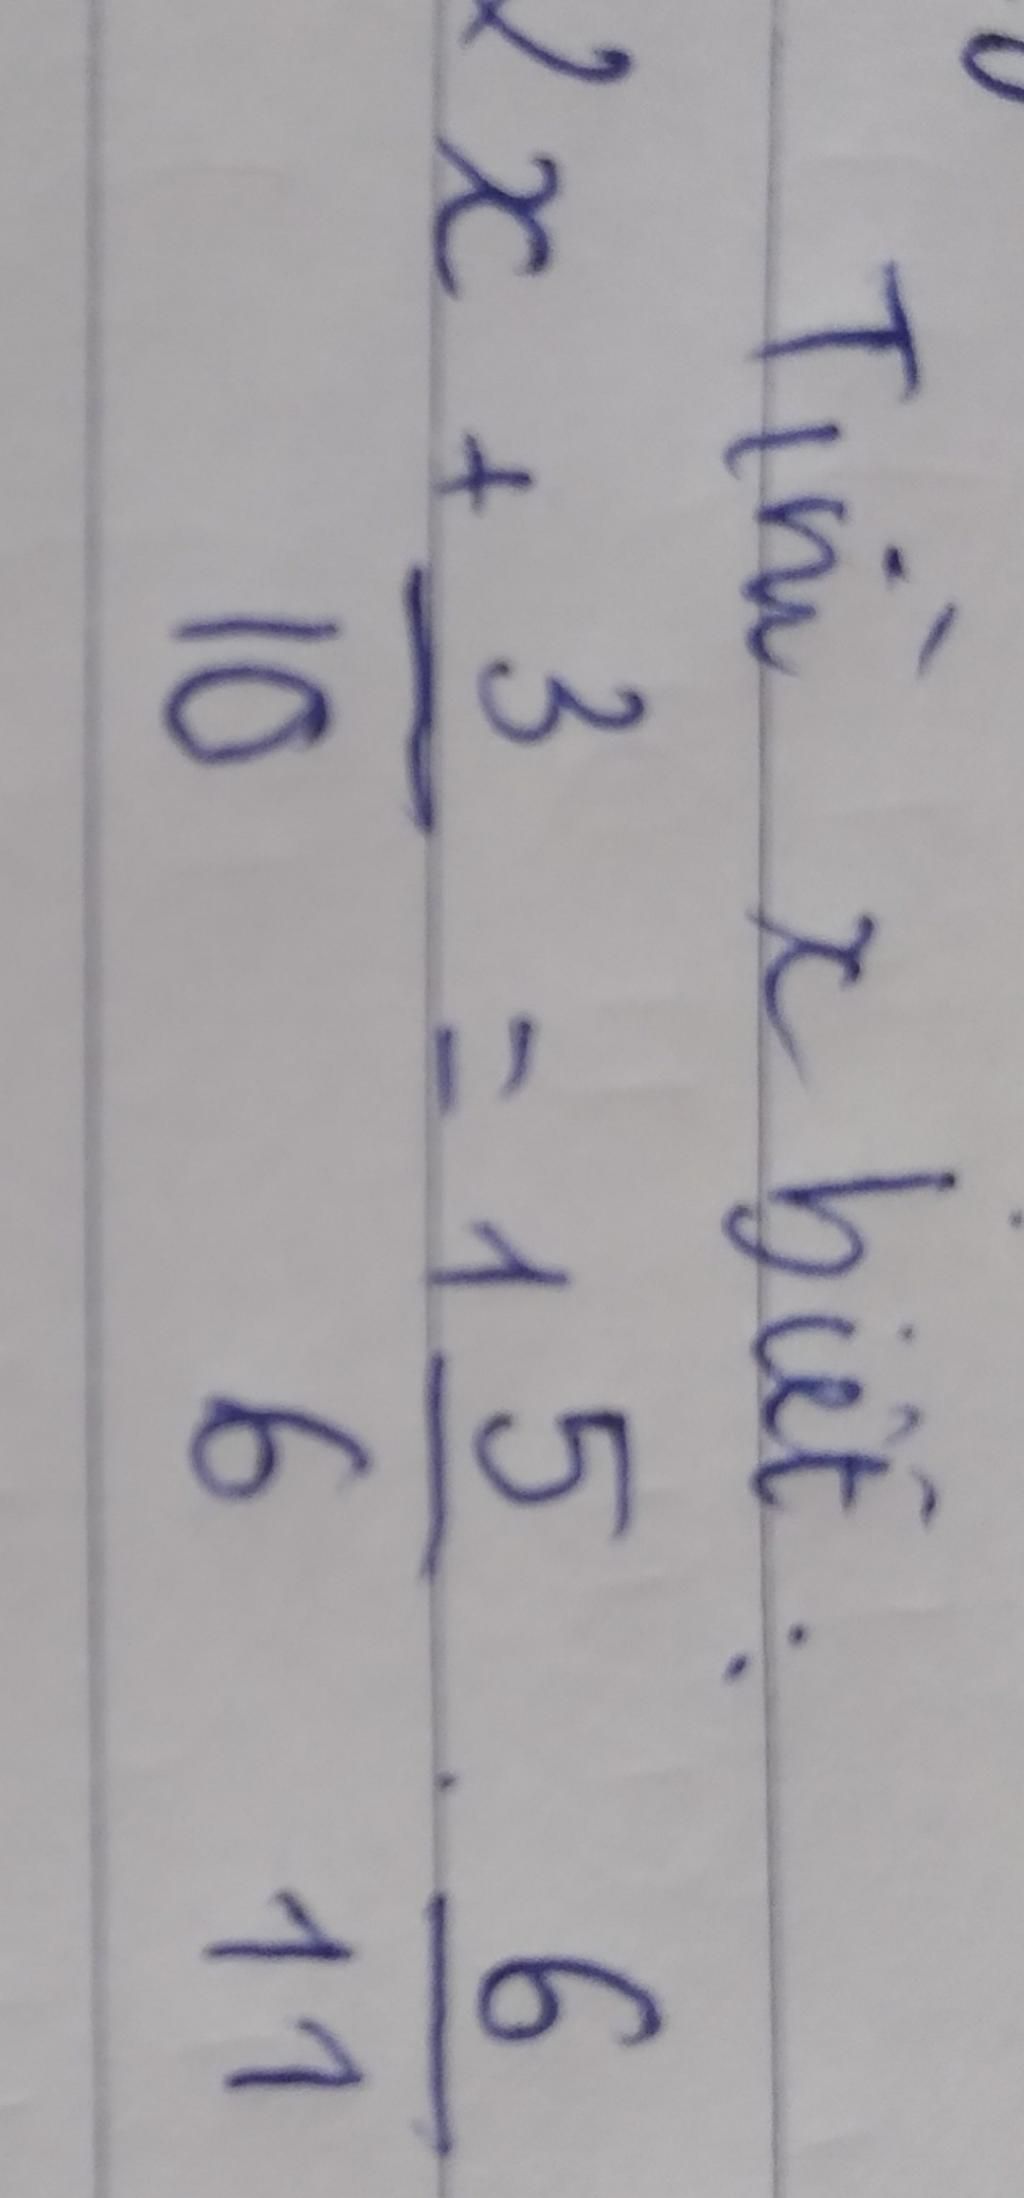 Tìm x biết :
x + 3/10 = 1 5/6 . 6/11